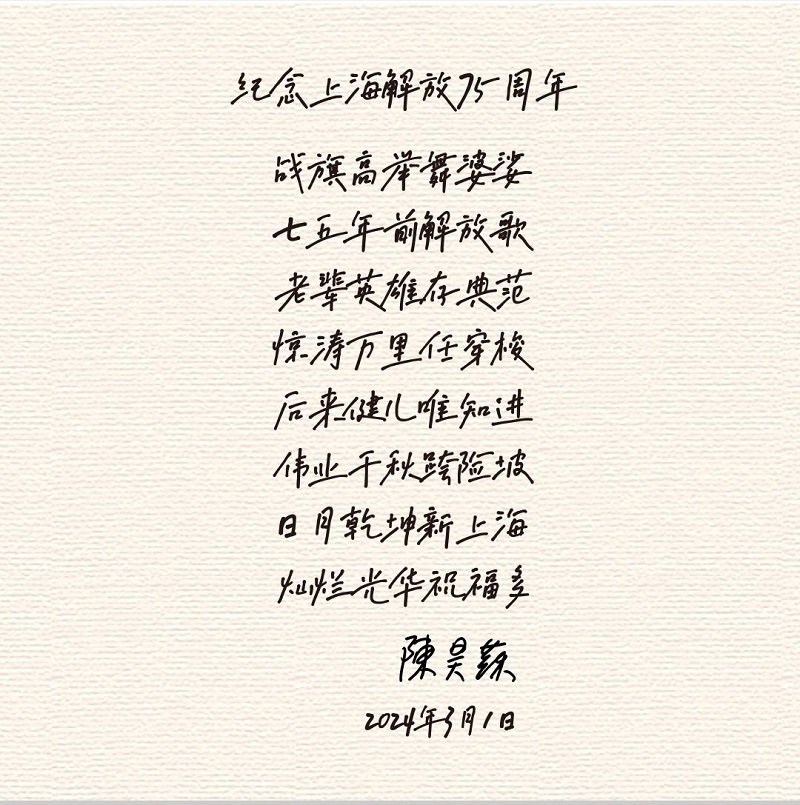 纪念上海解放75周年
战旗高举舞婆娑
七五年前解放歌
老辈英雄存典范
惊涛万里任穿梭
后来健儿唯知进
伟业千秋跨险坡
日月乾坤新上海
灿烂光华祝福多
陳昊蘇
2024年5月1日